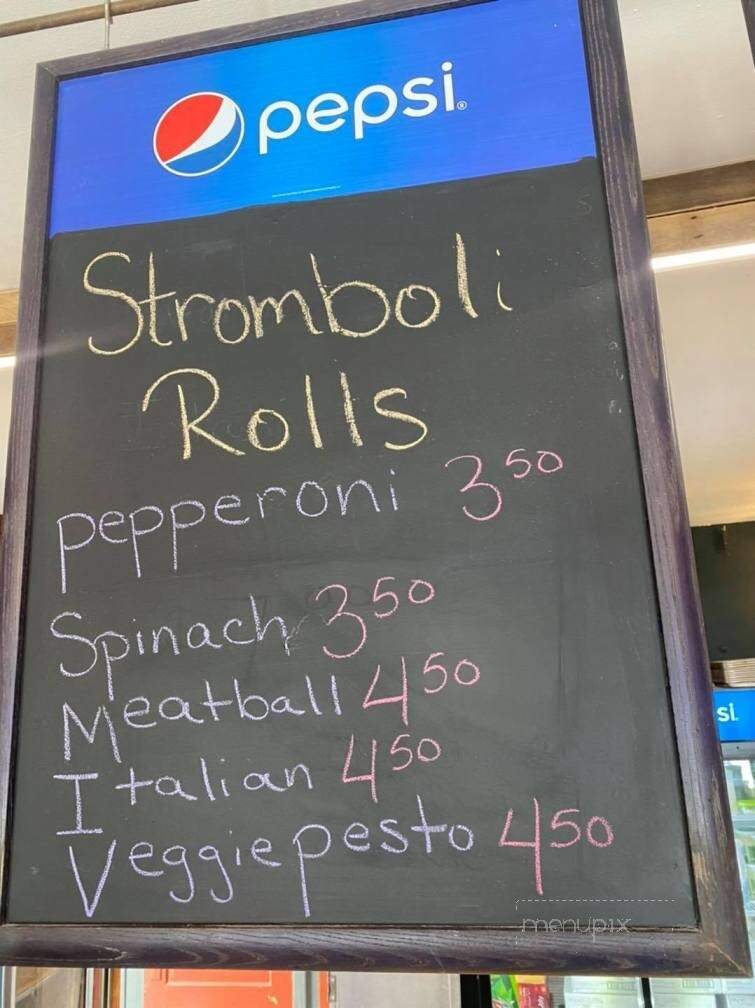 pepsi
Stromboli
Rolls
pepperoni 3 50
Spinach 3 50
Meatball 4 50
Italian 4 50
Veggie pesto 4 50
si
menupix